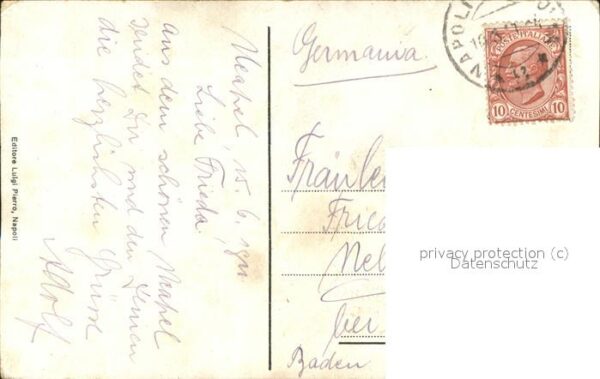 Neapel, 15. 6. 1911
Liebe Frieda!
Aus dem schönen Neapel
sendet Dir und den Deinen
die herzlichsten Grüsse
Adolf
Editore Luigi Pierro, Napoli
Germania
NAPOLI
POSTE ITALIANE
10 CENTESIMI 10
Fräulei
Frie
Nel
bei
Baden
privacy protection (c)
Datenschutz